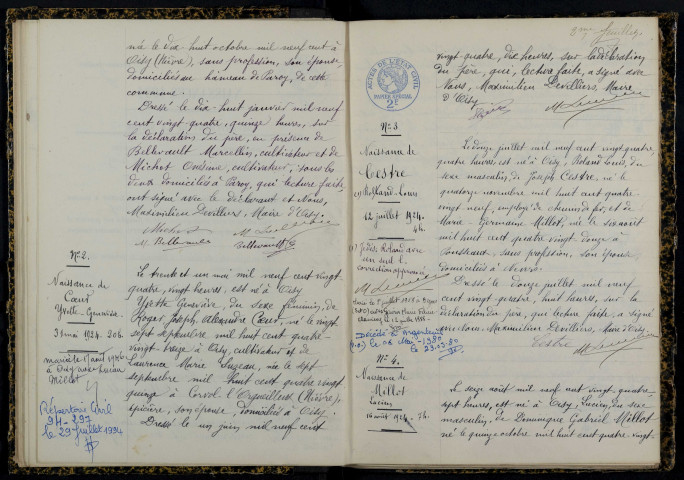 née le dix-huit octobre mil neuf cent à
Oisy (Nièvre), sans profession, son épouse,
domiciliés au hameau de Paroy, de cette
commune.
Dressé le dix-huit janvier mil neuf
cent vingt-quatre, quinze heures, sur
la déclaration du père, en présence de
Bellevault Marcellin, cultivateur et de
Michot Onésime, cultivateur, tous les
deux domiciliés à Paroy, qui lecture faite,
ont signé avec le déclarant et Nous,
Maximilien Devilliers, Maire d'Oisy.
N° 2.
Naissance de
Yvette Geneviève
31 mai 1924. 20 h.
marié le
à Oisy avec Lucien
Millot
Répertoire Civil
94-297
le 29 Juillet 1994
Le trente et un mai mil neuf cent vingt
quatre, vingt heures, est né à Oisy
Yvette Geneviève, du sexe féminin, de
Roger Joseph Alexandre, né le vingt
sept septembre mil huit cent quatre-
vingt-treize à Oisy, cultivateur et de
Laurence Marie, née le sept
septembre mil huit cent quatre vingt
quinze à Corvol l'Orgueilleux (Nièvre),
épicière, son épouse, domiciliés à Oisy.
Dressé le un juin mil neuf cent
vingt quatre, dix heures, sur la déclaration
du père, qui, lecture faite, a signé avec
Nous, Maximilien Devilliers, Maire
d'Oisy.
ACTES DE L'ETAT CIVIL
PAPIER SPECIAL
2F
N° 3
Naissance de
Cestre
Roland Louis
12 juillet 1924.
4 h.
Je dis Roland avec
un seul l.
correction approuvée
Décédé à Argenteuil
le 06 Mai 1980
le 23.12.80
Le douze juillet mil neuf cent vingt quatre,
quatre heures, est né à Oisy, Roland Louis, du
sexe masculin, de Joseph Cestre, né le
quatorze novembre mil huit cent quatre
vingt neuf, employé de chemin de fer, et de
Marie-Germaine Millot, née le six août
mil huit cent quatre vingt douze à
sans profession, son épouse,
domiciliés à
Dressé le douze juillet mil neuf
cent vingt-quatre, huit heures, sur la
déclaration du père, qui lecture faite, a signé
avec Nous, Maximilien Devilliers, Maire d'Oisy.
Cestre
N° 4.
Naissance de
Millot
Lucien
16 août 1924. 7 h.
Le seize août mil neuf cent vingt-quatre,
sept heures, est né à Oisy, Lucien, du sexe
masculin, de Dominique Gabriel Millot
né le quinze octobre mil huit cent quatre-vingt-